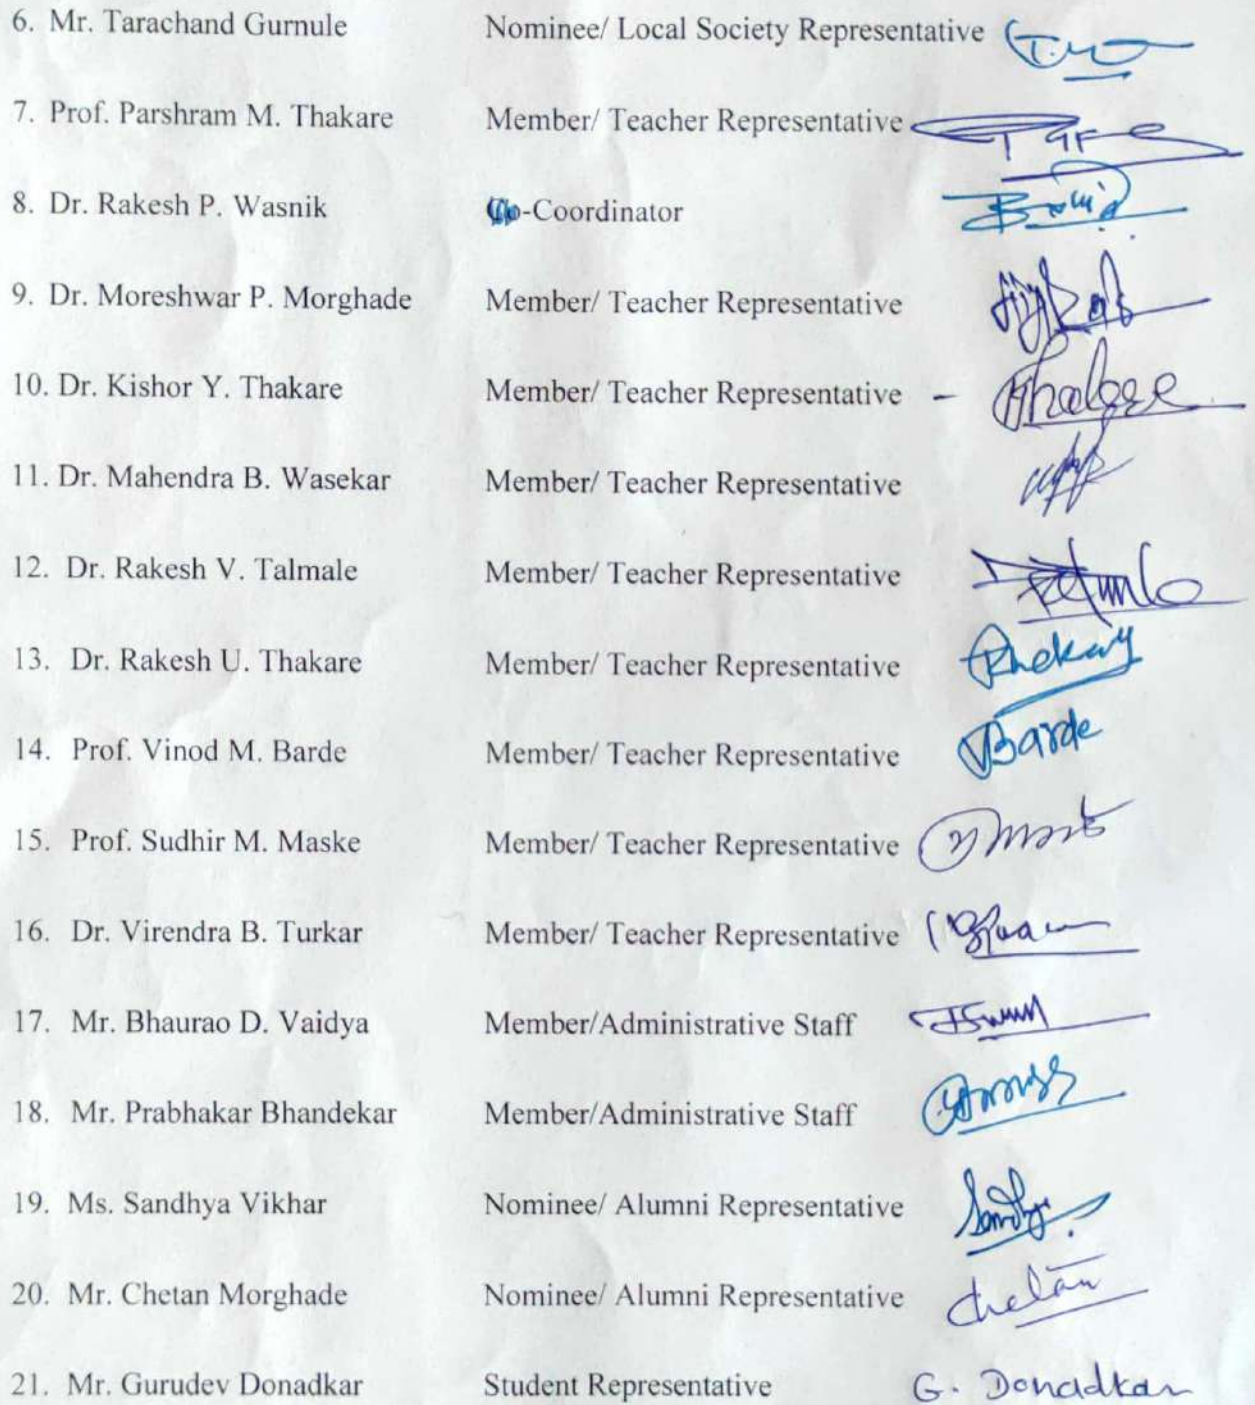 6. Mr. Tarachand Gurnule Nominee/ Local Society Representative
7. Prof. Parshram M. Thakare Member/ Teacher Representative
8. Dr. Rakesh P. Wasnik Co-Coordinator
9. Dr. Moreshwar P. Morghade Member/ Teacher Representative
10. Dr. Kishor Y. Thakare Member/ Teacher Representative -
11. Dr. Mahendra B. Wasekar Member/ Teacher Representative
12. Dr. Rakesh V. Talmale Member/ Teacher Representative
13. Dr. Rakesh U. Thakare Member/ Teacher Representative
14. Prof. Vinod M. Barde Member/ Teacher Representative VBarde
15. Prof. Sudhir M. Maske Member/ Teacher Representative
16. Dr. Virendra B. Turkar Member/ Teacher Representative
17. Mr. Bhaurao D. Vaidya Member/Administrative Staff
18. Mr. Prabhakar Bhandekar Member/Administrative Staff
19. Ms. Sandhya Vikhar Nominee/ Alumni Representative
20. Mr. Chetan Morghade Nominee/ Alumni Representative Chetan
21. Mr. Gurudev Donadkar Student Representative G. Donadkar